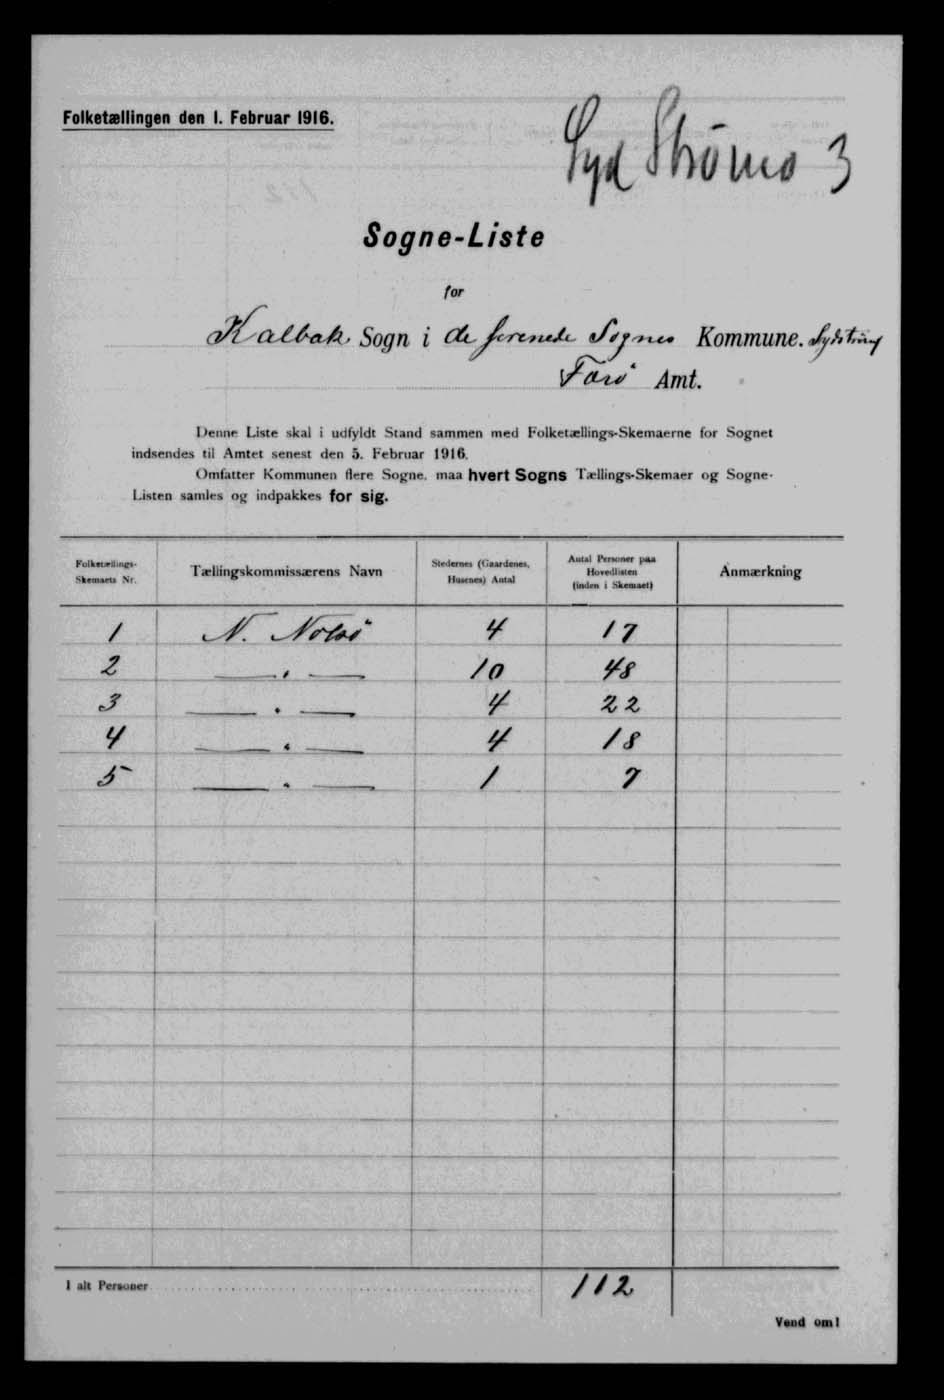 Folketællingen den 1. Februar 1916.
Syd Strömö 3
Sogne-Liste
for
Kalbak Sogn i de forenede Sognes Kommune.
Færö Amt.
Denne Liste skal i udfyldt Stand sammen med Folketællings-Skemaerne for Sognet
indsendes til Amtet senest den 5. Februar 1916.
Omfatter Kommunen flere Sogne, maa hvert Sogns Tællings-Skemaer og Sogne-
Listen samles og indpakkes for sig.
Folketællings-
Skemaets Nr.
Tællingskommissærens Navn
Stedernes (Gaardenes,
Husenes) Antal
Antal Personer paa
Hovedlisten
(inden i Skemaet)
Anmærkning
1 N. Nolsö 4 17
2 — " — 10 48
3 — " — 4 22
4 — " — 4 18
5 — " — 1 7
I alt Personer 112
Vend om!